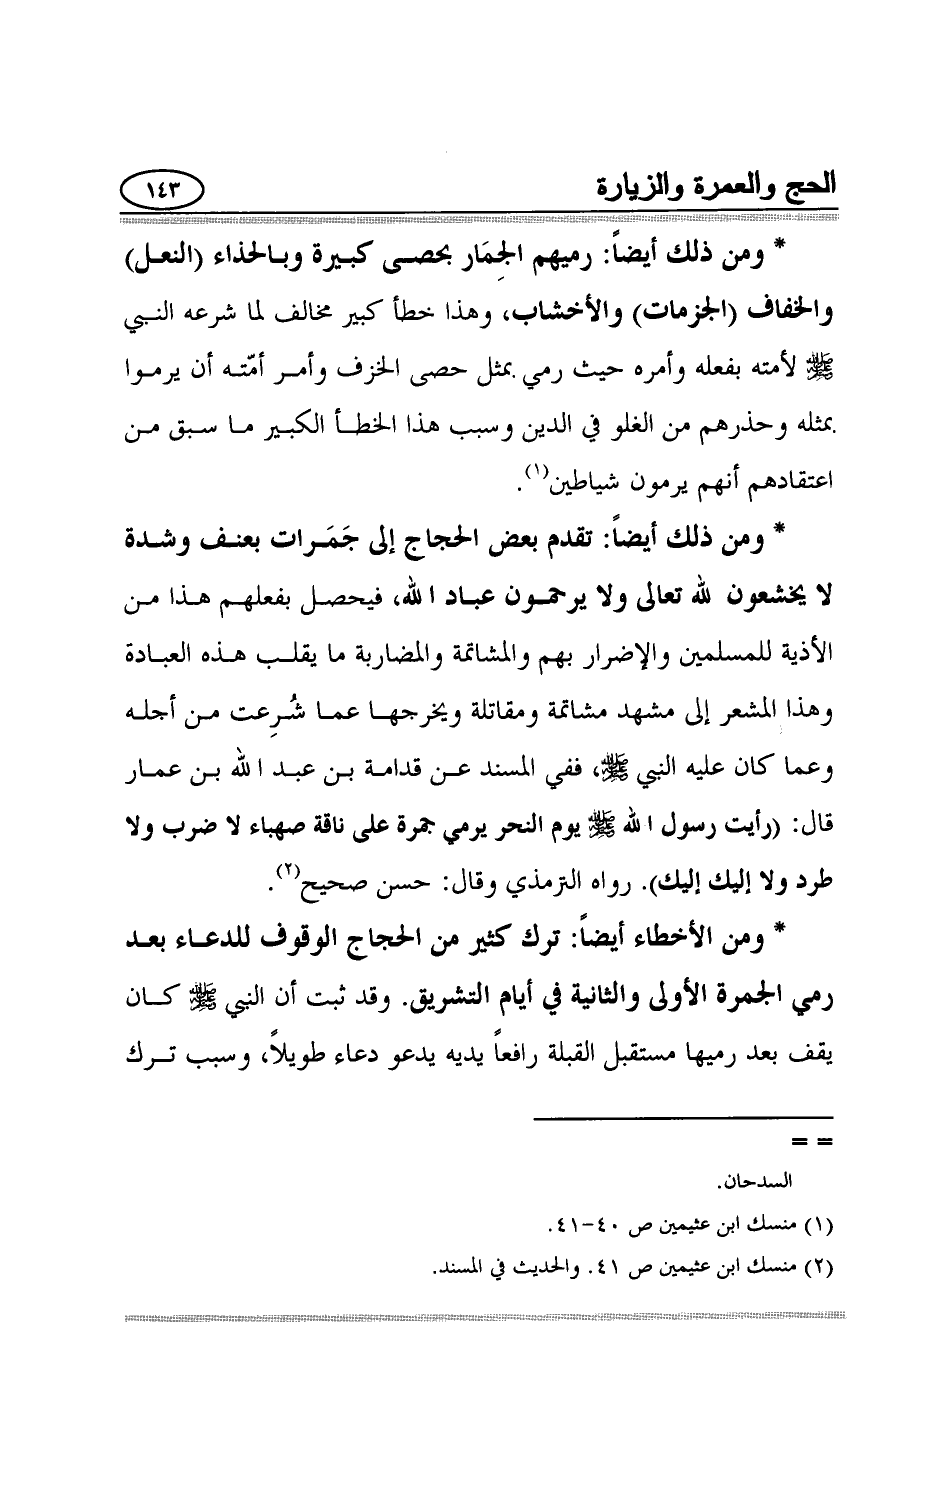 الحج والعمرة والزيارة
١٤٣
* ومن ذلك أيضاً: رميهم الجِمَار بحصى كبيرة وبالحذاء (النعل)
والخفاف (الجزمات) والأخشاب، وهذا خطأ كبير مخالف لما شرعه النبي
ﷺ لأمته بفعله وأمره حيث رمي بمثل حصى الخزف وأمر أمّته أن يرموا
بمثله وحذرهم من الغلو في الدين وسبب هذا الخطأ الكبير ما سبق من
اعتقادهم أنهم يرمون شياطين(١).
* ومن ذلك أيضاً: تقدم بعض الحجاج إلى جَمَرات بعنف وشدة
لا يخشعون لله تعالى ولا يرحمون عباد الله، فيحصل بفعلهم هذا من
الأذية للمسلمين والإضرار بهم والمشاتمة والمضاربة ما يقلب هذه العبادة
وهذا المشعر إلى مشهد مشاتمة ومقاتلة ويخرجها عما شُرِعت من أجله
وعما كان عليه النبي ﷺ، ففي المسند عن قدامة بن عبد الله بن عمار
قال: (رأيت رسول الله ﷺ يوم النحر يرمي جمرة على ناقة صهباء لا ضرب ولا
طرد ولا إليك إليك). رواه الترمذي وقال: حسن صحيح(٢).
* ومن الأخطاء أيضاً: ترك كثير من الحجاج الوقوف للدعاء بعد
رمي الجمرة الأولى والثانية في أيام التشريق. وقد ثبت أن النبي ﷺ كان
يقف بعد رميها مستقبل القبلة رافعاً يديه يدعو دعاء طويلاً، وسبب ترك
= =
السدحان.
(١) منسك ابن عثيمين ص ٤٠-٤١.
(٢) منسك ابن عثيمين ص ٤١. والحديث في المسند.